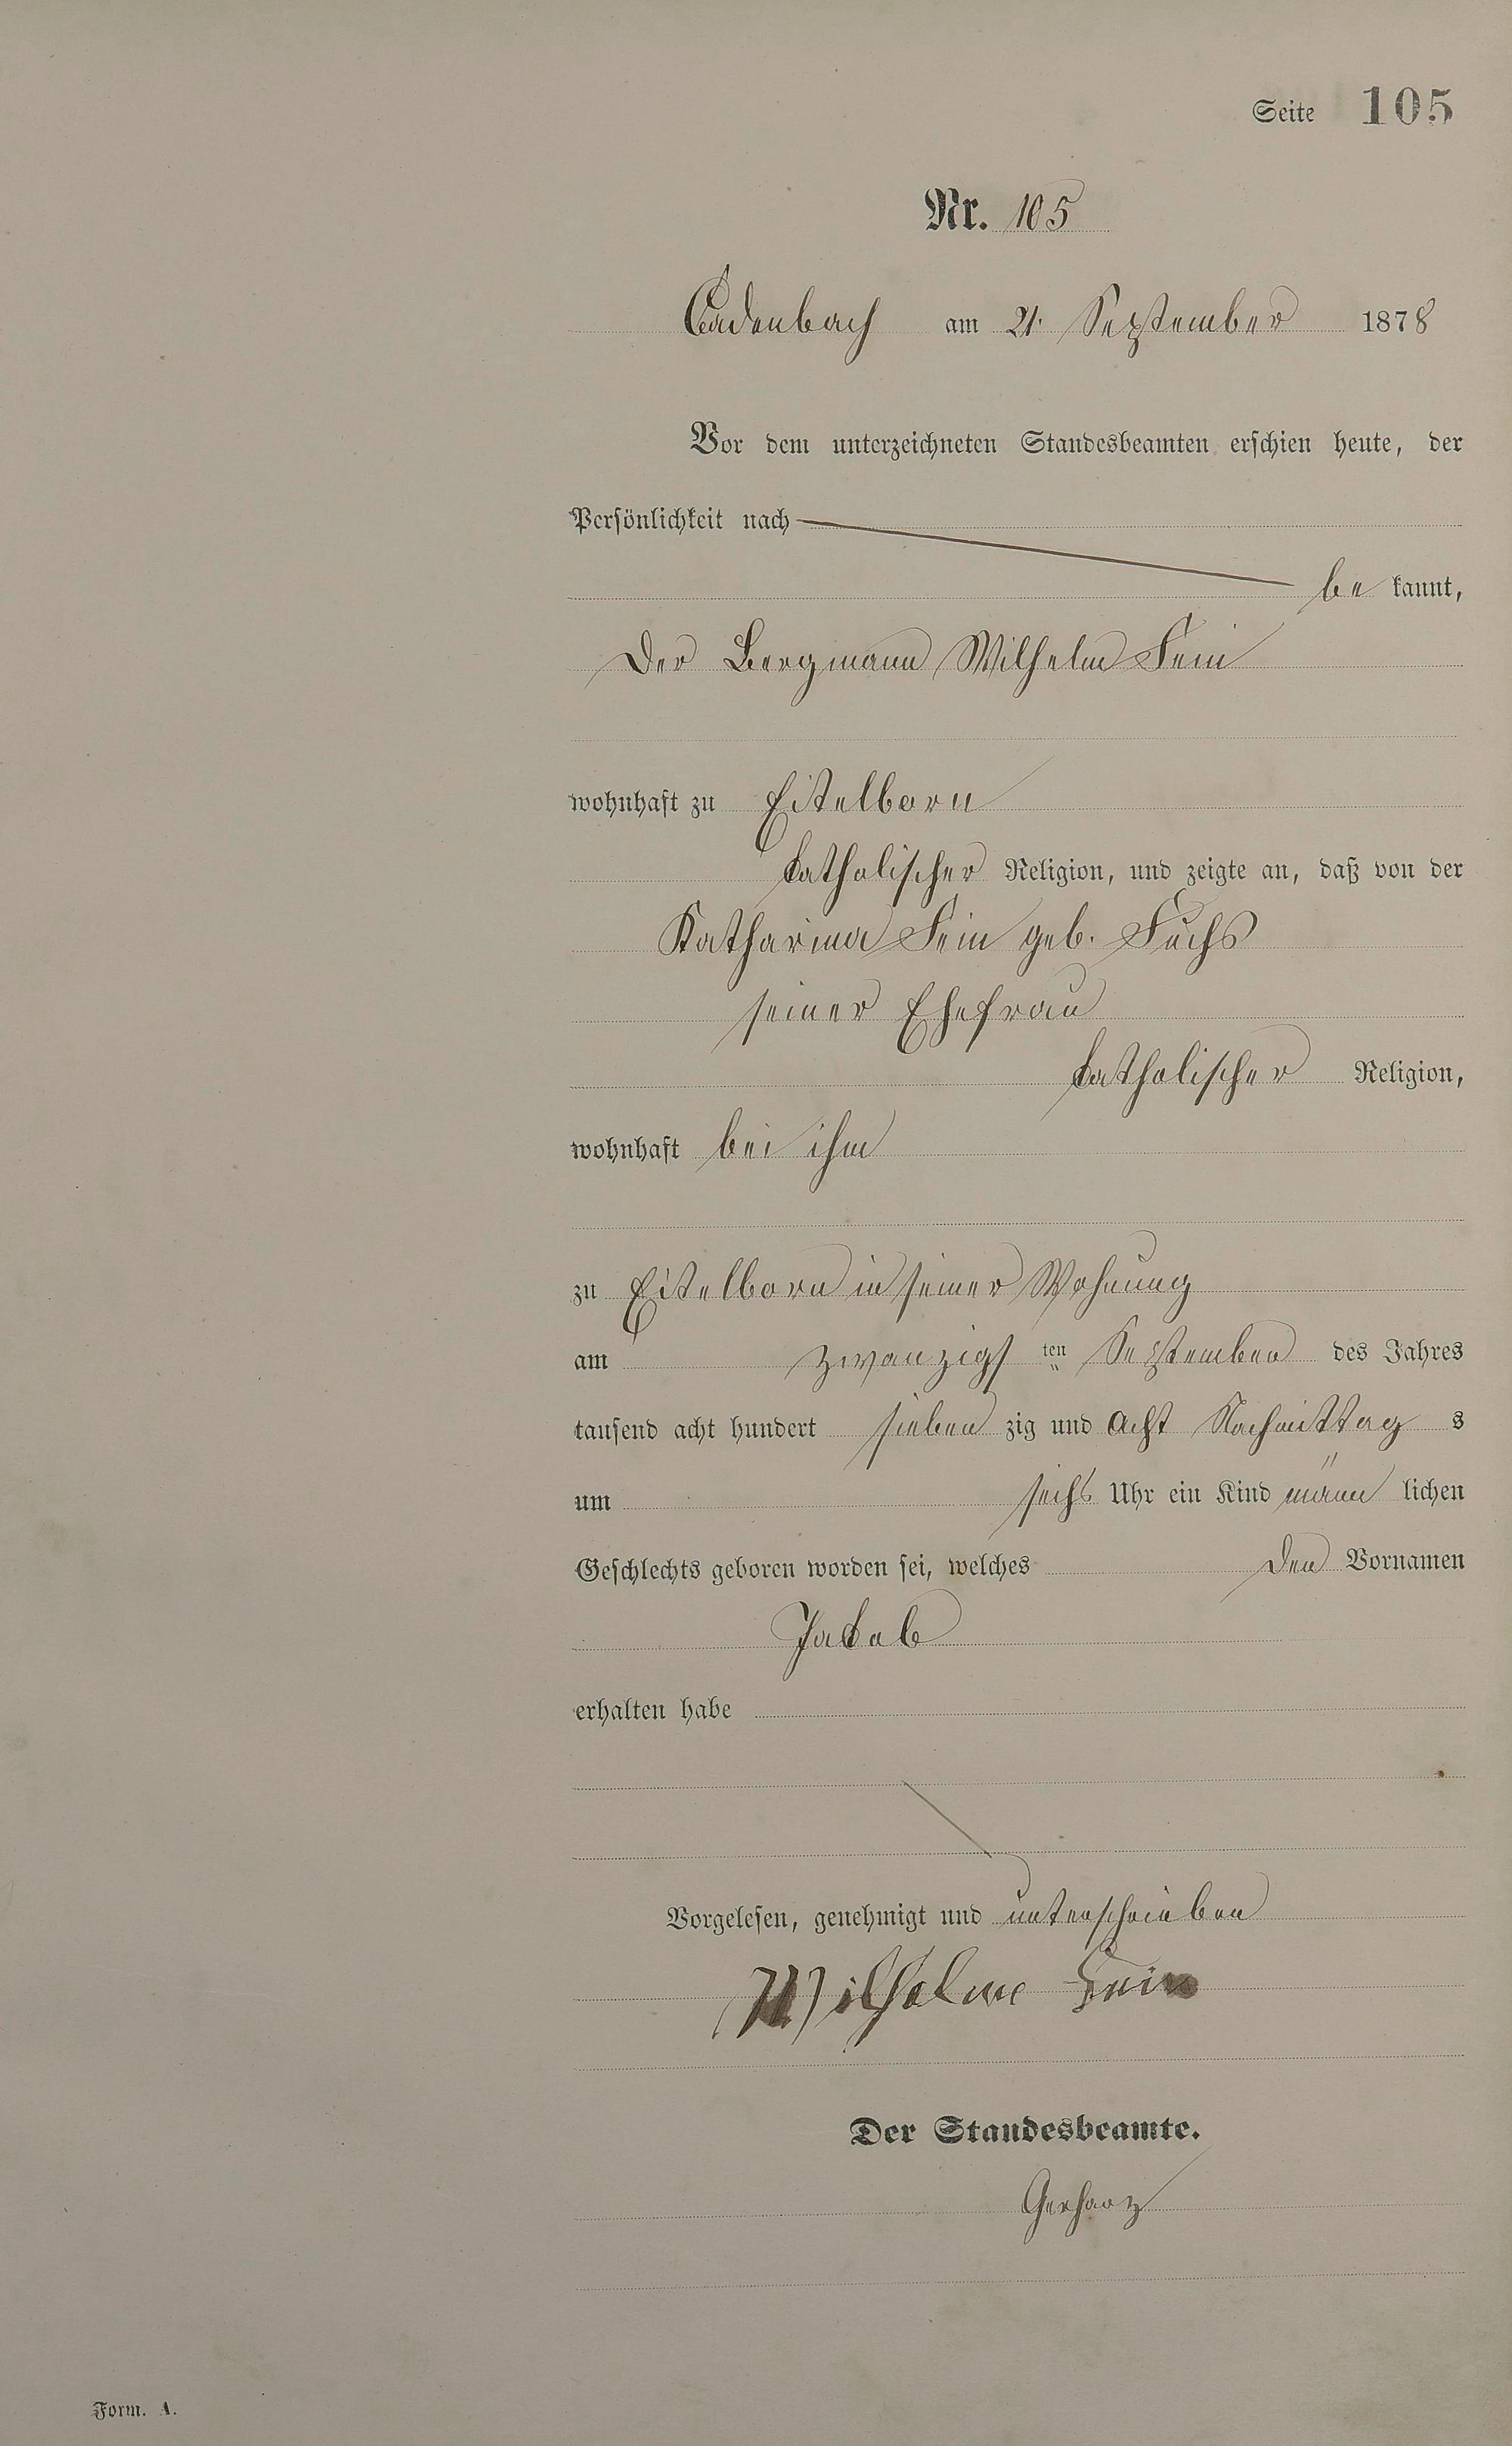 Seite 105
Nr. 105
Cadenbach am 21. September 1878
Vor dem unterzeichneten Standesbeamten erschien heute, der
Persönlichkeit nach
be kannt,
Der Bergmann Wilhelm Fein
wohnhaft zu Eitelborn
katholischer Religion, und zeigte an, daß von der
Katharina Fein geb. Fuchs
seiner Ehefrau
katholischer Religion,
wohnhaft bei ihm
zu Eitelborn in seiner Wohnung
am zwanzigs ten September des Jahres
tausend acht hundert sieben zig und Acht Nachmittag s
um sechs Uhr ein Kind männ lichen
Geschlechts geboren worden sei, welches den Vornamen
Jakob
erhalten habe
Vorgelesen, genehmigt und unterschrieben
Wilhelm Fein
Der Standesbeamte.
Gerharz
Form. A.